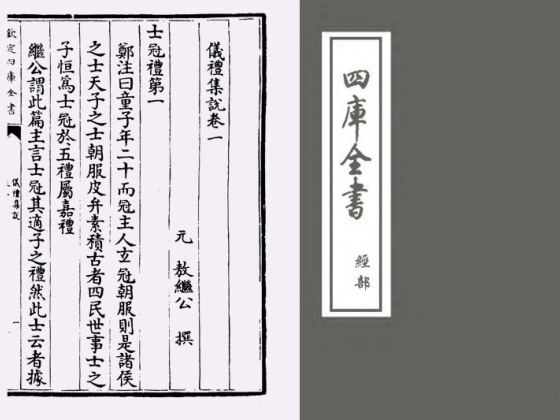 儀禮集說卷一
元 敖繼公 撰
士冠禮第一
鄭注曰童子年二十而冠主人玄冠朝服則是諸侯
之士天子之士朝服皮弁素積古者四民世事士之
子恒為士冠於五禮屬嘉禮
繼公謂此篇主言士冠其適子之禮然此士云者據
欽定四庫全書
儀禮集說
四庫全書
經部